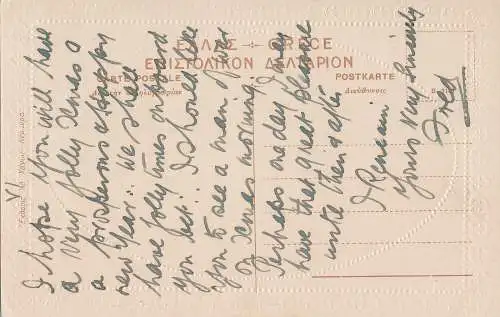 ΕΛΛΑΣ GRECE
ΕΠΙΣΤΟΛΙΚΟΝ ΔΕΛΤΑΡΙΟΝ
CARTE POSTALE
POSTKARTE
Διεύθυνσις
VI
I hope you will have
a very jolly Xmas &
a prosperous & happy
new year. We shall
have jolly times on board
you bet. I should like
you to see a man of war
on Xmas morning.
Perhaps one day I may
have that great pleasure
unke then & after
I Remain
Yours Very Sincerely
Fred